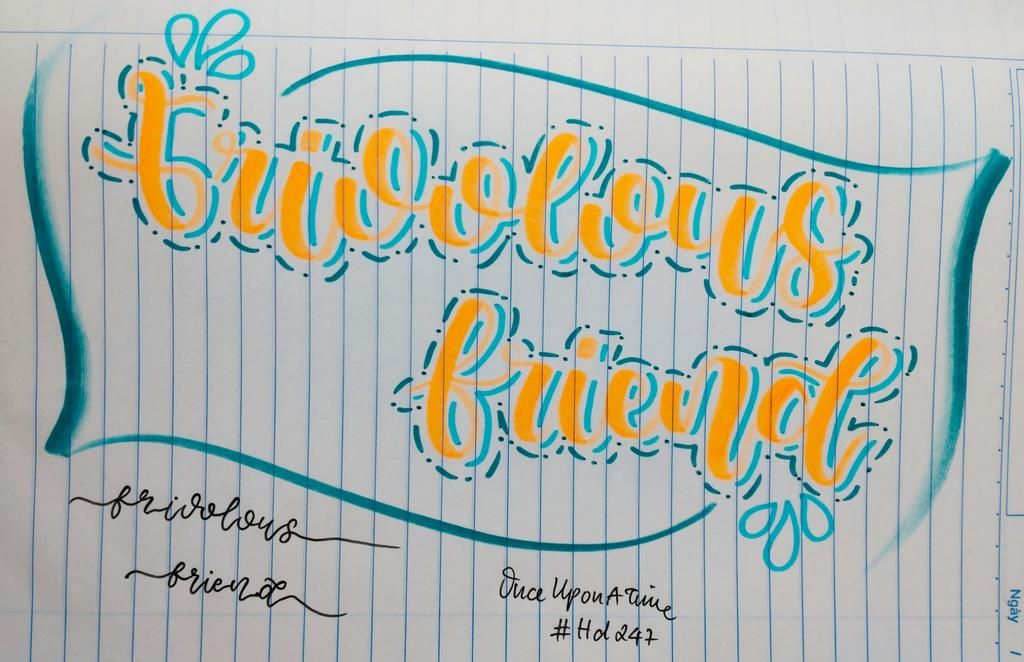 frivolous
friend
frivolous
friend
Once Upon A Time
#Hd247
Ngày /